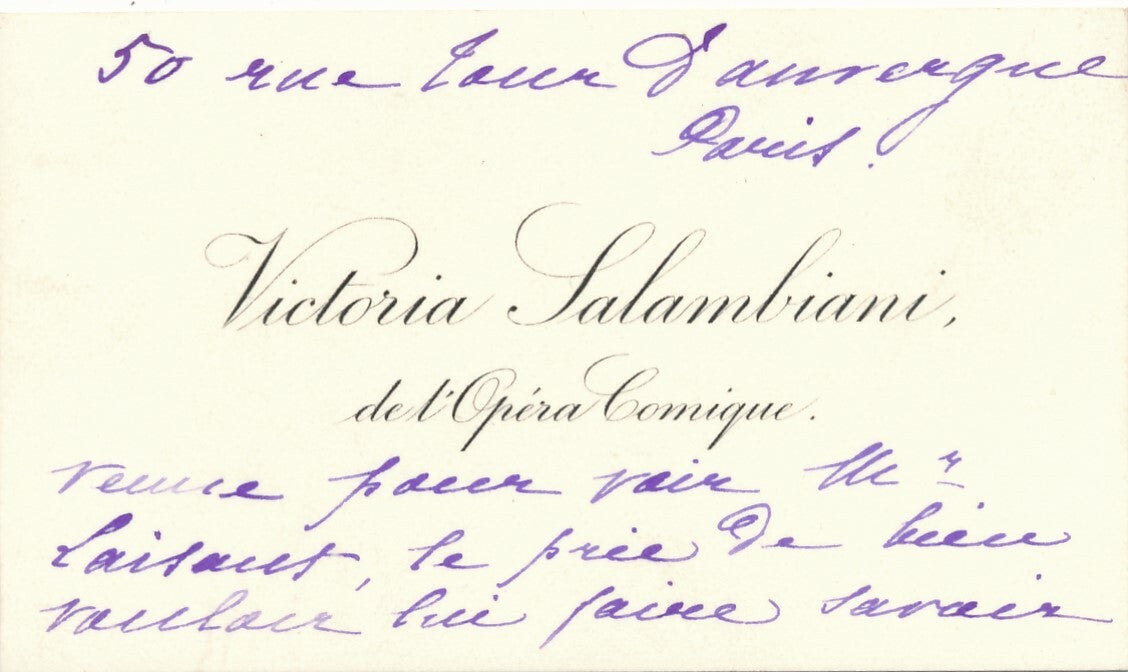 50 rue Tour D'auvergne
Paris.
Victoria Salambiani,
de l'Opéra Comique.
venue pour voir Mr
Laisant, le prie de bien
vouloir lui faire savoir